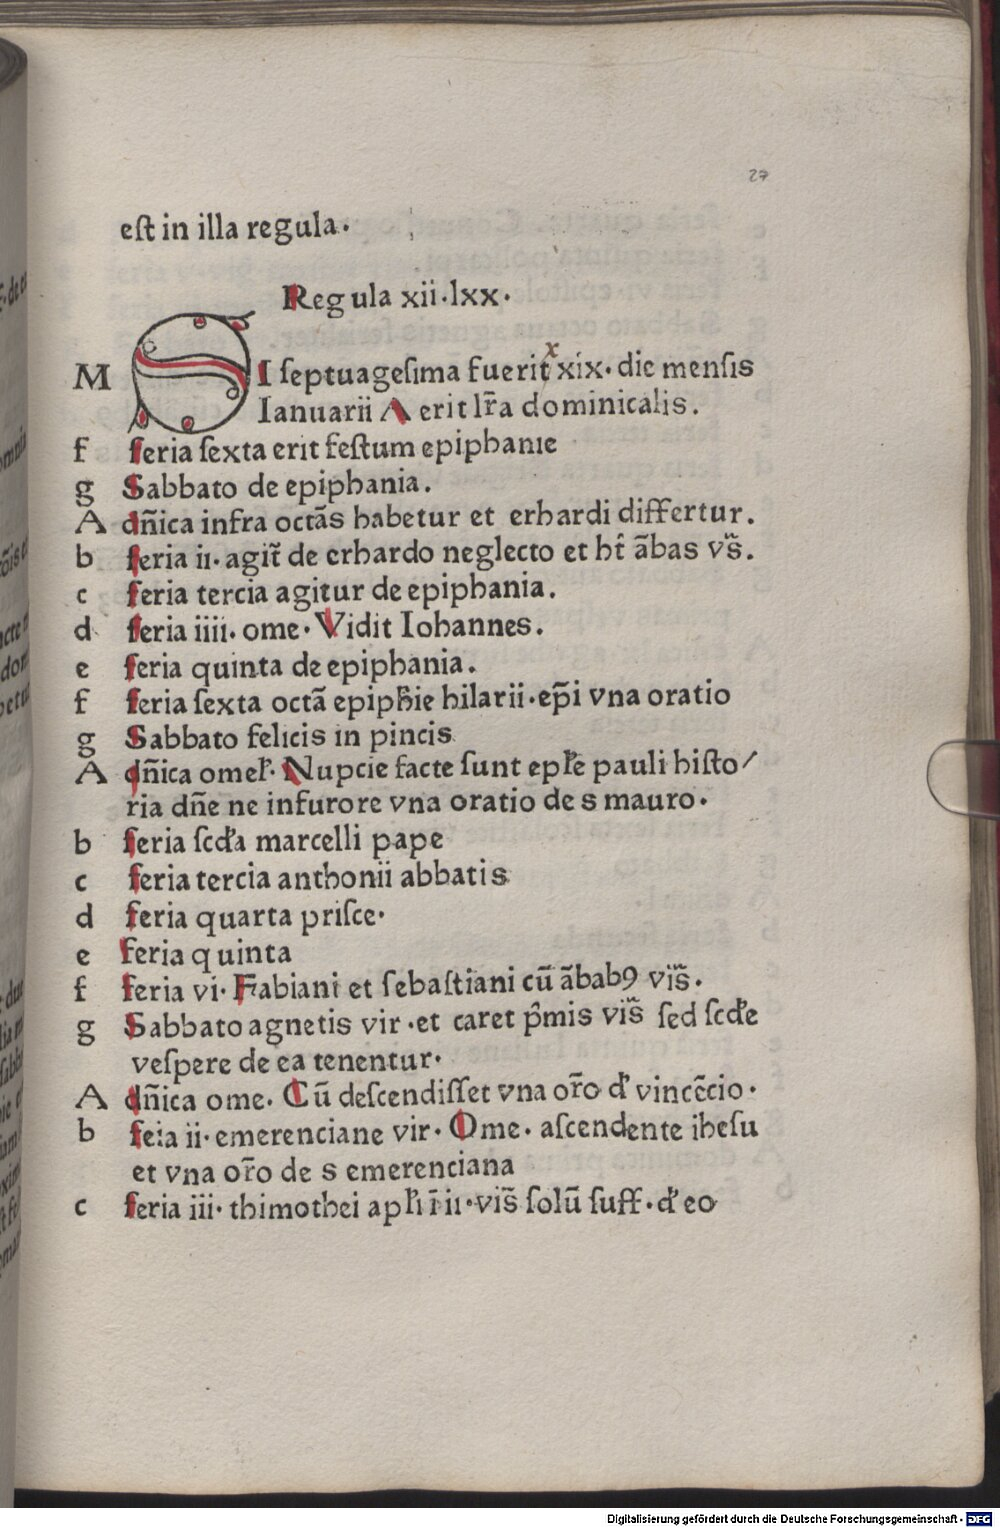 27
est in illa regula.
Regula xii.lxx.
M SI septuagesima fuerit x xix. die mensis
Ianuarii A erit lr̃a dominicalis.
f feria sexta erit festum epiphanie
g Sabbato de epiphania.
A dñica infra octãs habetur et erhardi differtur.
b feria ii. agit̃ de erhardo neglecto et ht̃ ãbas vs̃.
c feria tercia agitur de epiphania.
d feria iiii. ome. Vidit Iohannes.
e feria quinta de epiphania.
f feria sexta octã epiphĩe hilarii.ep̃i vna oratio
g Sabbato felicis in pincis
A dñica omel̃. Nupcie facte sunt epl̃e pauli histo/
ria dñe ne infurore vna oratio de s mauro.
b feria scd̃a marcelli pape
c feria tercia anthonii abbatis
d feria quarta prisce.
e feria quinta
f feria vi. Fabiani et sebastiani cũ ãbabꝰ vis̃.
g Sabbato agnetis vir.et caret p̃mis vis̃ sed scd̃e
vespere de ea tenentur.
A dñica ome. Cũ descendisset vna or̃o d̃ vincẽcio.
b feia ii. emerenciane vir. Ome. ascendente ihesu
et vna or̃o de s emerenciana
c feria iii. thimothei apl̃i ĩ ii.vis̃ solũ suff.d̃ eo
Digitalisierung gefördert durch die Deutsche Forschungsgemeinschaft - DFG